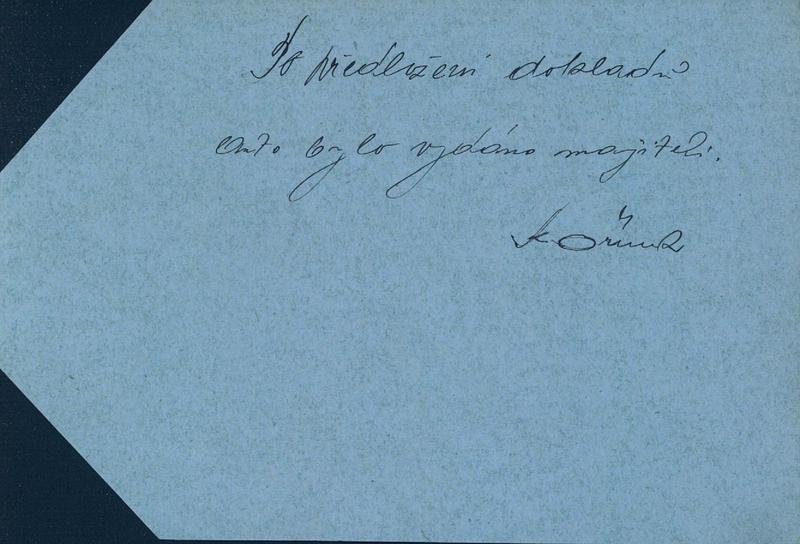 Po předložení dokladů
auto bylo vydáno majiteli.